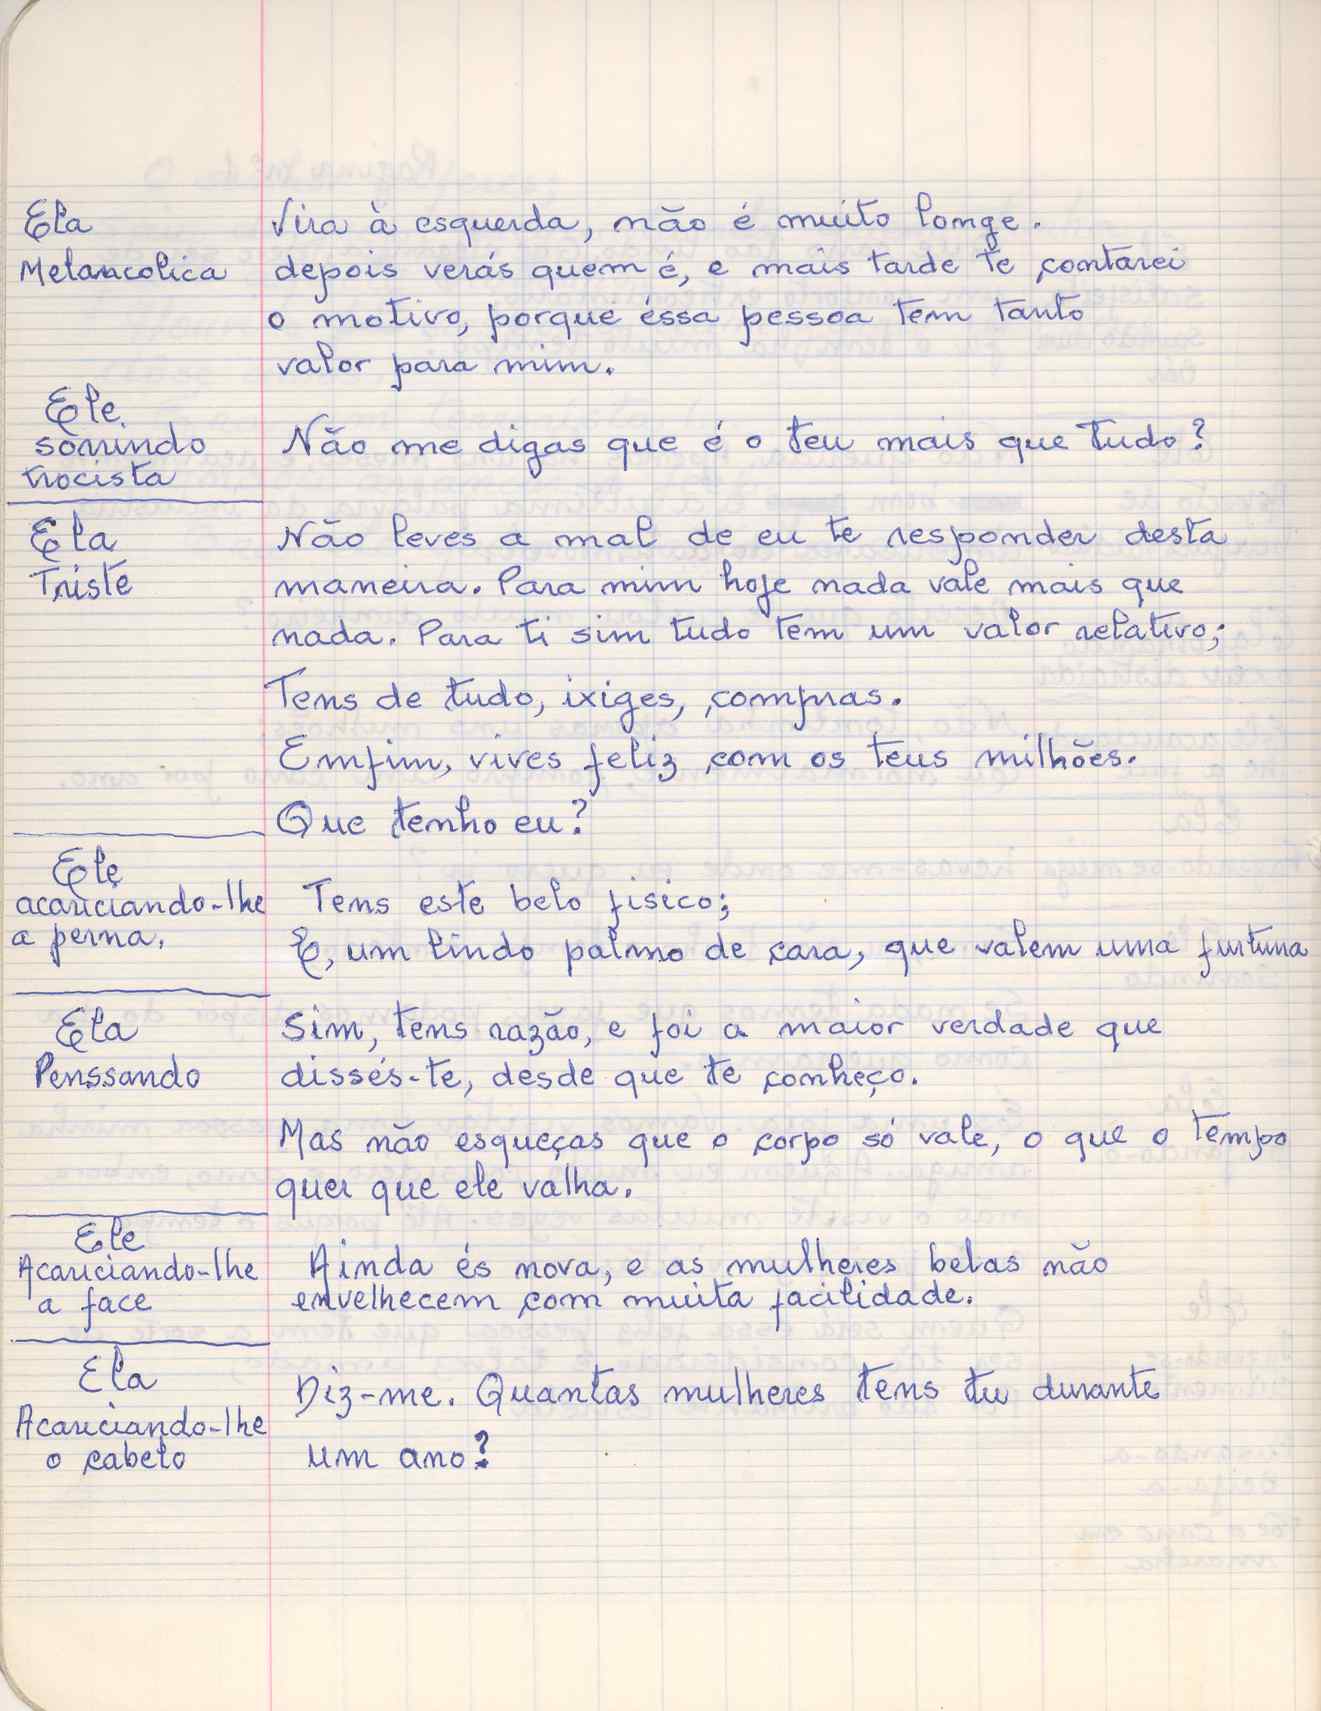 Ela
Melancolica
Vira à esquerda, não é muito longe.
depois verás quem é, e mais tarde te contarei
o motivo, porque éssa pessoa tem tanto
valor para mim.
Ele
sorrindo
trocista
Não me digas que é o teu mais que tudo?
Ela
Triste
Não leves a mal de eu te responder desta
maneira. Para mim hoje nada vale mais que
nada. Para ti sim tudo tem um valor relativo;
Tens de tudo, ixiges, compras.
Emfim, vives feliz com os teus milhões.
Que tenho eu?
Ele
acariciando-lhe
a perna,
Tens este belo fisico;
E, um lindo palmo de cara, que valem uma furtuna
Ela
Penssando
Sim, tens razão, e foi a maior verdade que
dissés-te, desde que te conheço.
Mas não esqueças que o corpo só vale, o que o tempo
quer que ele valha.
Ele
Acariciando-lhe
a face
Ainda és nova, e as mulheres belas não
envelhecem com muita facilidade.
Ela
Acariciando-lhe
o cabelo
Diz-me. Quantas mulheres tens tu durante
um ano?